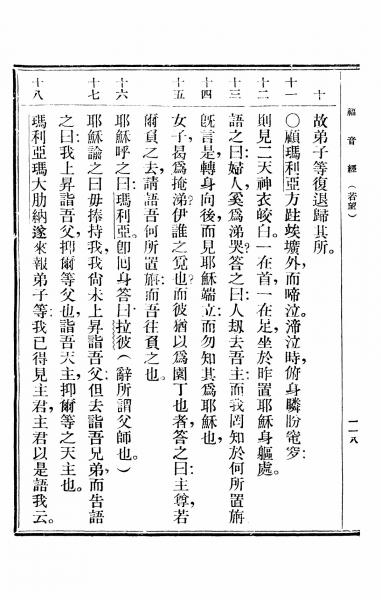 福音經（若望）
一一八
十
故弟子等復退歸其所。
十一
〇顧瑪利亞方跬埃壙外而啼泣。渧泣時，俯身瞵盼窀穸：
十二
則見二天神衣皎白：一在首，一在足，坐於昨置耶穌身軀處。
十三
語之曰：婦人，奚爲渧哭？答之曰：人刼去吾主；而我罔知於何所置旃
十四
旣言是，轉身向後，而見耶穌端立；而勿知其爲耶穌也，
十五
女子，曷爲掩渧？伊誰之覓也？而彼猶以爲園丁也者，答之曰：主尊，若
爾負之去，請語吾何所置旃；而吾往負之也。
十六
耶穌呼之曰：瑪利亞。卽囘身答曰：拉彼（辭所謂父師也。）
十七
耶穌諭之曰：毋捧持我，我尙未上昇詣吾父；但去詣吾兄弟，而告語
之曰：我上昇詣吾父，抑爾等父也，詣吾天主，抑爾等之天主也。
十八
瑪利亞瑪大肋納遂來報弟子等：我已得見主君，主君以是語我云。